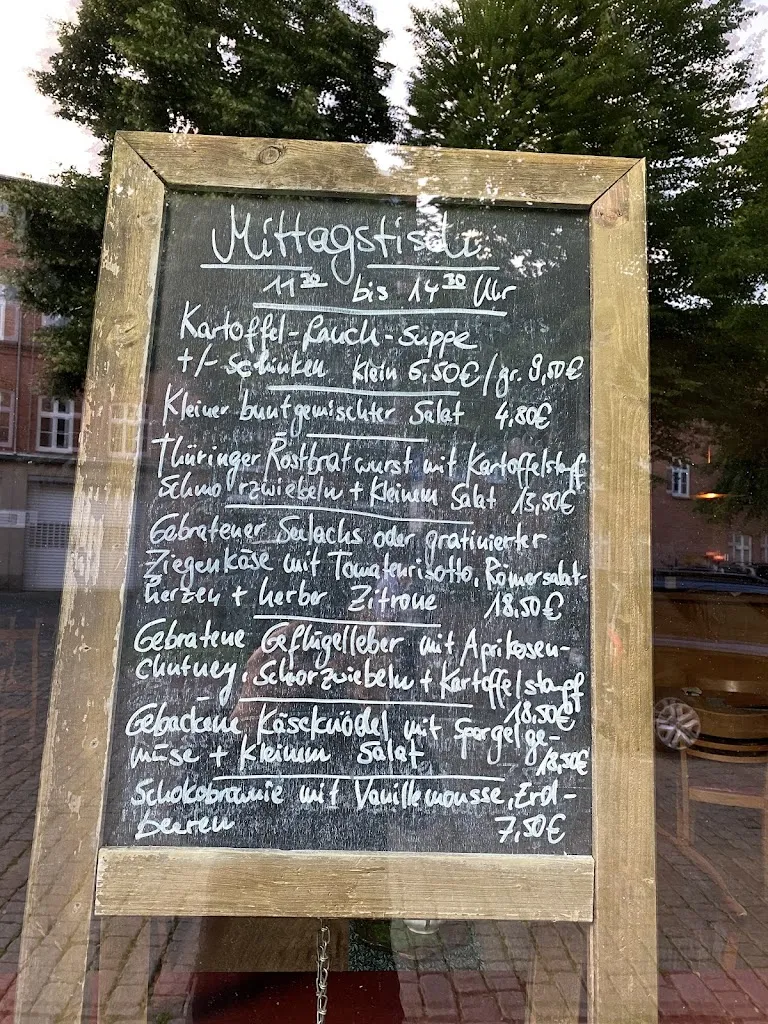 Mittagstisch
11³⁰ bis 14³⁰ Uhr
Kartoffel-Lauch-Suppe
+/- Schinken klein 6,50€/gr. 9,50€
Kleiner buntgemischter Salat 4,80€
Thüringer Rostbratwurst mit Kartoffelstapf
Schmorzwiebeln + kleinem Salat 13,50€
Gebratener Seelachs oder gratinierter
Ziegenkäse mit Tomatenrisotto, Römersalat-
herzen + herber Zitrone 18,50€
Gebratene Geflügelleber mit Aprikosen-
chutney, Schmorzwiebeln + Kartoffelstampf
18,50€
Gebackene Käseknödel mit Spargelge-
müse + kleinem Salat 18,50€
Schokobrownie mit Vanillemousse, Erd-
beeren 7,50€